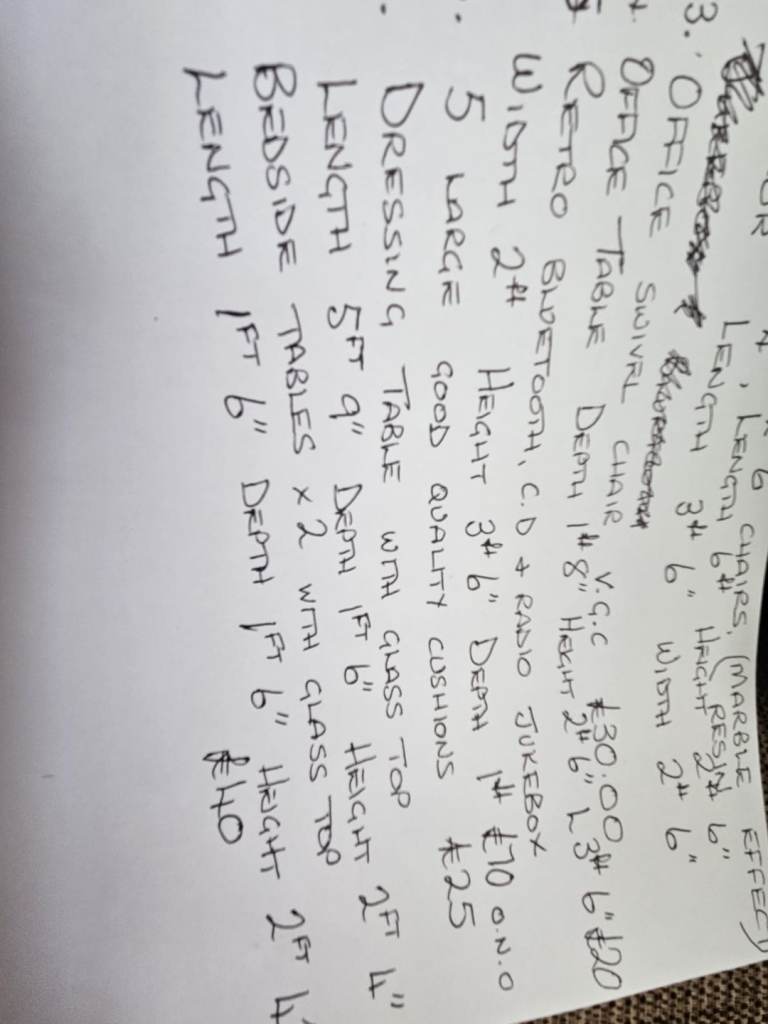 6 CHAIRS. (MARBLE EFFECT)
LENGTH 6ft HEIGHT 2ft 6"
RESIN
LENGTH 3ft 6" WIDTH 2ft 6"
3. OFFICE SWIVEL CHAIR V.G.C £30:00
OFFICE TABLE DEPTH 1ft 8" HEIGHT 2ft 6" L 3ft 6" £20
RETRO BLUETOOTH, C.D + RADIO JUKEBOX
WIDTH 2ft HEIGHT 3ft 6" DEPTH 1ft £70 O.N.O
5 LARGE GOOD QUALITY CUSHIONS £25
DRESSING TABLE WITH GLASS TOP
LENGTH 5FT 9" DEPTH 1FT 6" HEIGHT 2FT 4"
BEDSIDE TABLES x 2 WITH GLASS TOP
LENGTH 1FT 6" DEPTH 1FT 6" HEIGHT 2FT 4"
£40